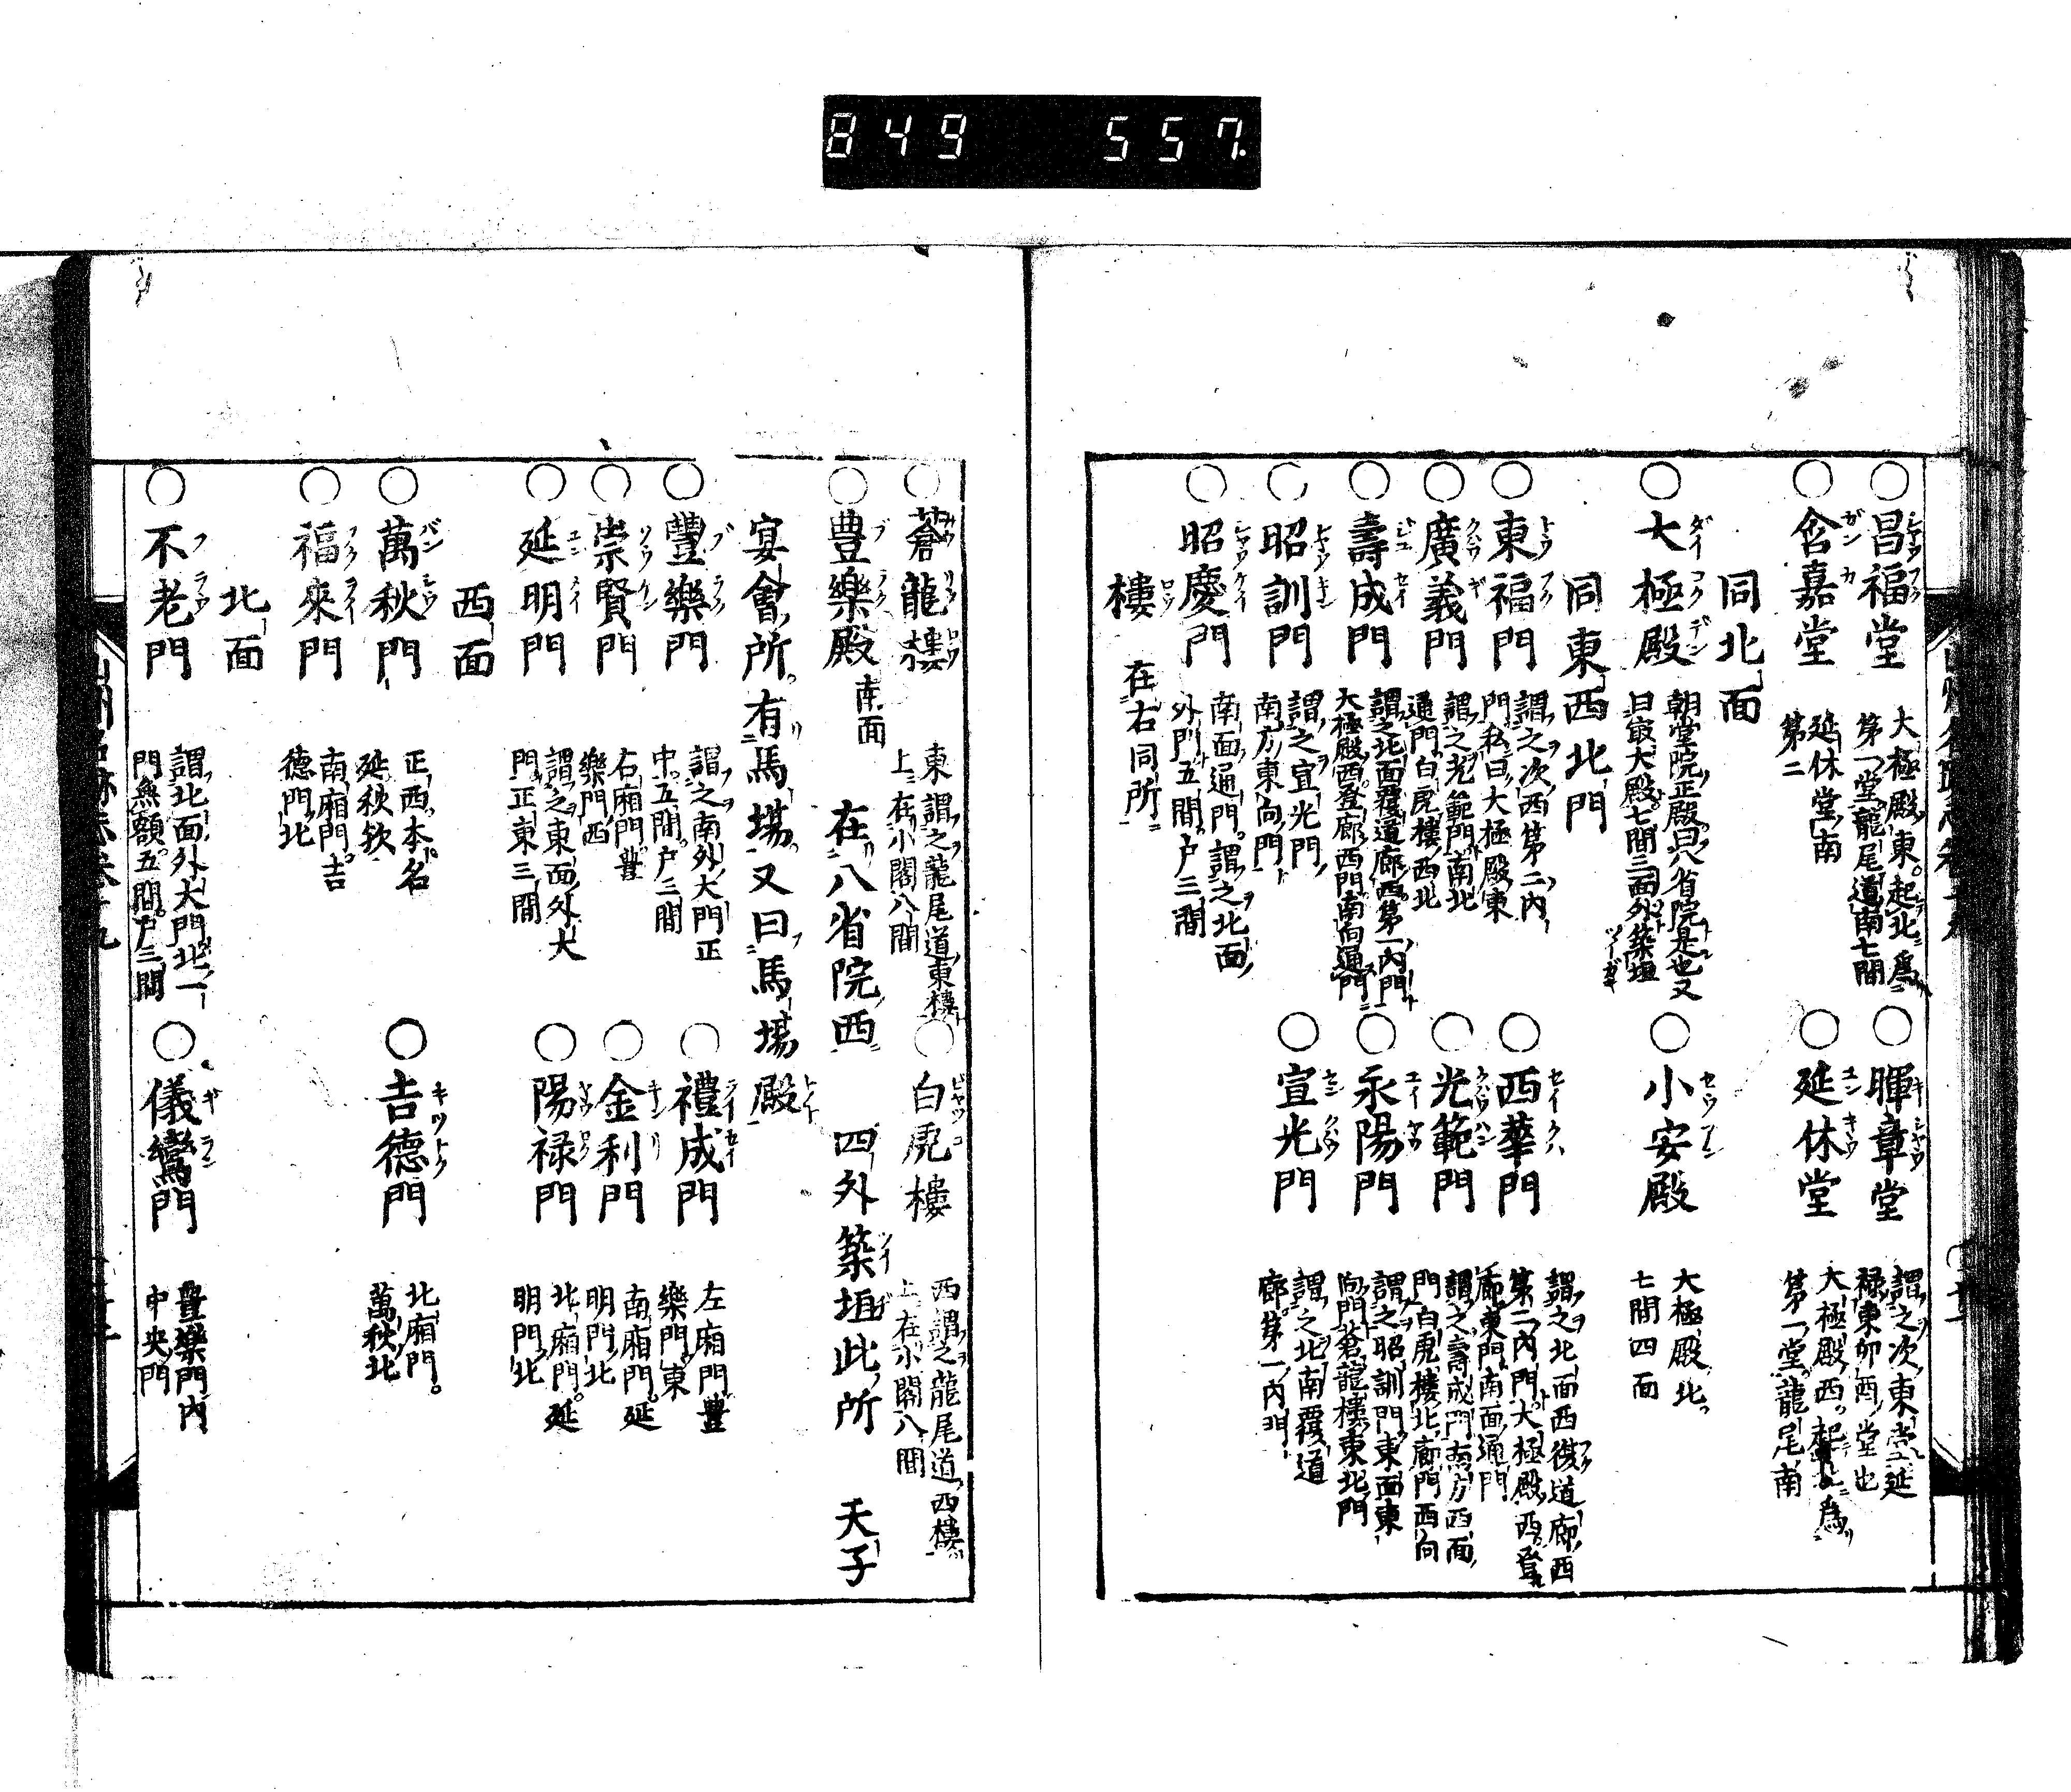 849 557.
○昌福堂 大極殿東。起北爲第一堂龍尾道南七間 ○暉章堂 謂之次東堂延禄東卯酉堂也
○含嘉堂 延休堂南第二 ○延休堂 大極殿西。起北爲第一堂。龍尾南
同北面
○大極殿 朝堂院正殿曰八省院是也又曰最大殿七間三面外築垣 ○小安殿 大極殿北。七間四面
同東西北門
○東福門 謂之次西第二内門私曰大極殿東 ○西華門 謂之北面西複道廊西第二内門大極殿西登廊東門南面通門
○廣義門 謂之光範門南北通門白虎樓西北 ○光範門 謂之壽成門南方西面門白虎樓北廊門西向
○壽成門 謂之北面覆道廊西第一内門大極殿西登廊西門南向通門 ○永陽門 謂之昭訓門東面東向門蒼龍樓東北門
○昭訓門 謂之宣光門南方東向門 ○宣光門 謂之北南覆道廊第一内門
○昭慶門 南面通門。謂之北面外門五間戸三間
樓 在右同所
○蒼龍樓 東謂之龍尾道東樓上在小閣八間 ○白虎樓 西謂之龍尾道西樓上在小閣八間
○豊樂殿 南面 在八省院西 四外築垣此所 天子
宴會所有馬場又曰馬場殿
○豐樂門 謂之南外大門正中五間。戸三間 ○禮成門 左廂門豐樂門東
○崇賢門 右廂門。豐樂門西 ○金利門 南廂門。延明門北
○延明門 謂之東面外大門正東三間 ○陽禄門 北廂門。延明門北
西面
○萬秋門 正西本名延秋欤 ○吉德門 北廂門。萬秋北
○福來門 南廂門。吉德門北
北面
○不老門 謂北面外大門北一門無額五間。戸三間 ○儀鸞門 豐樂門内中央門